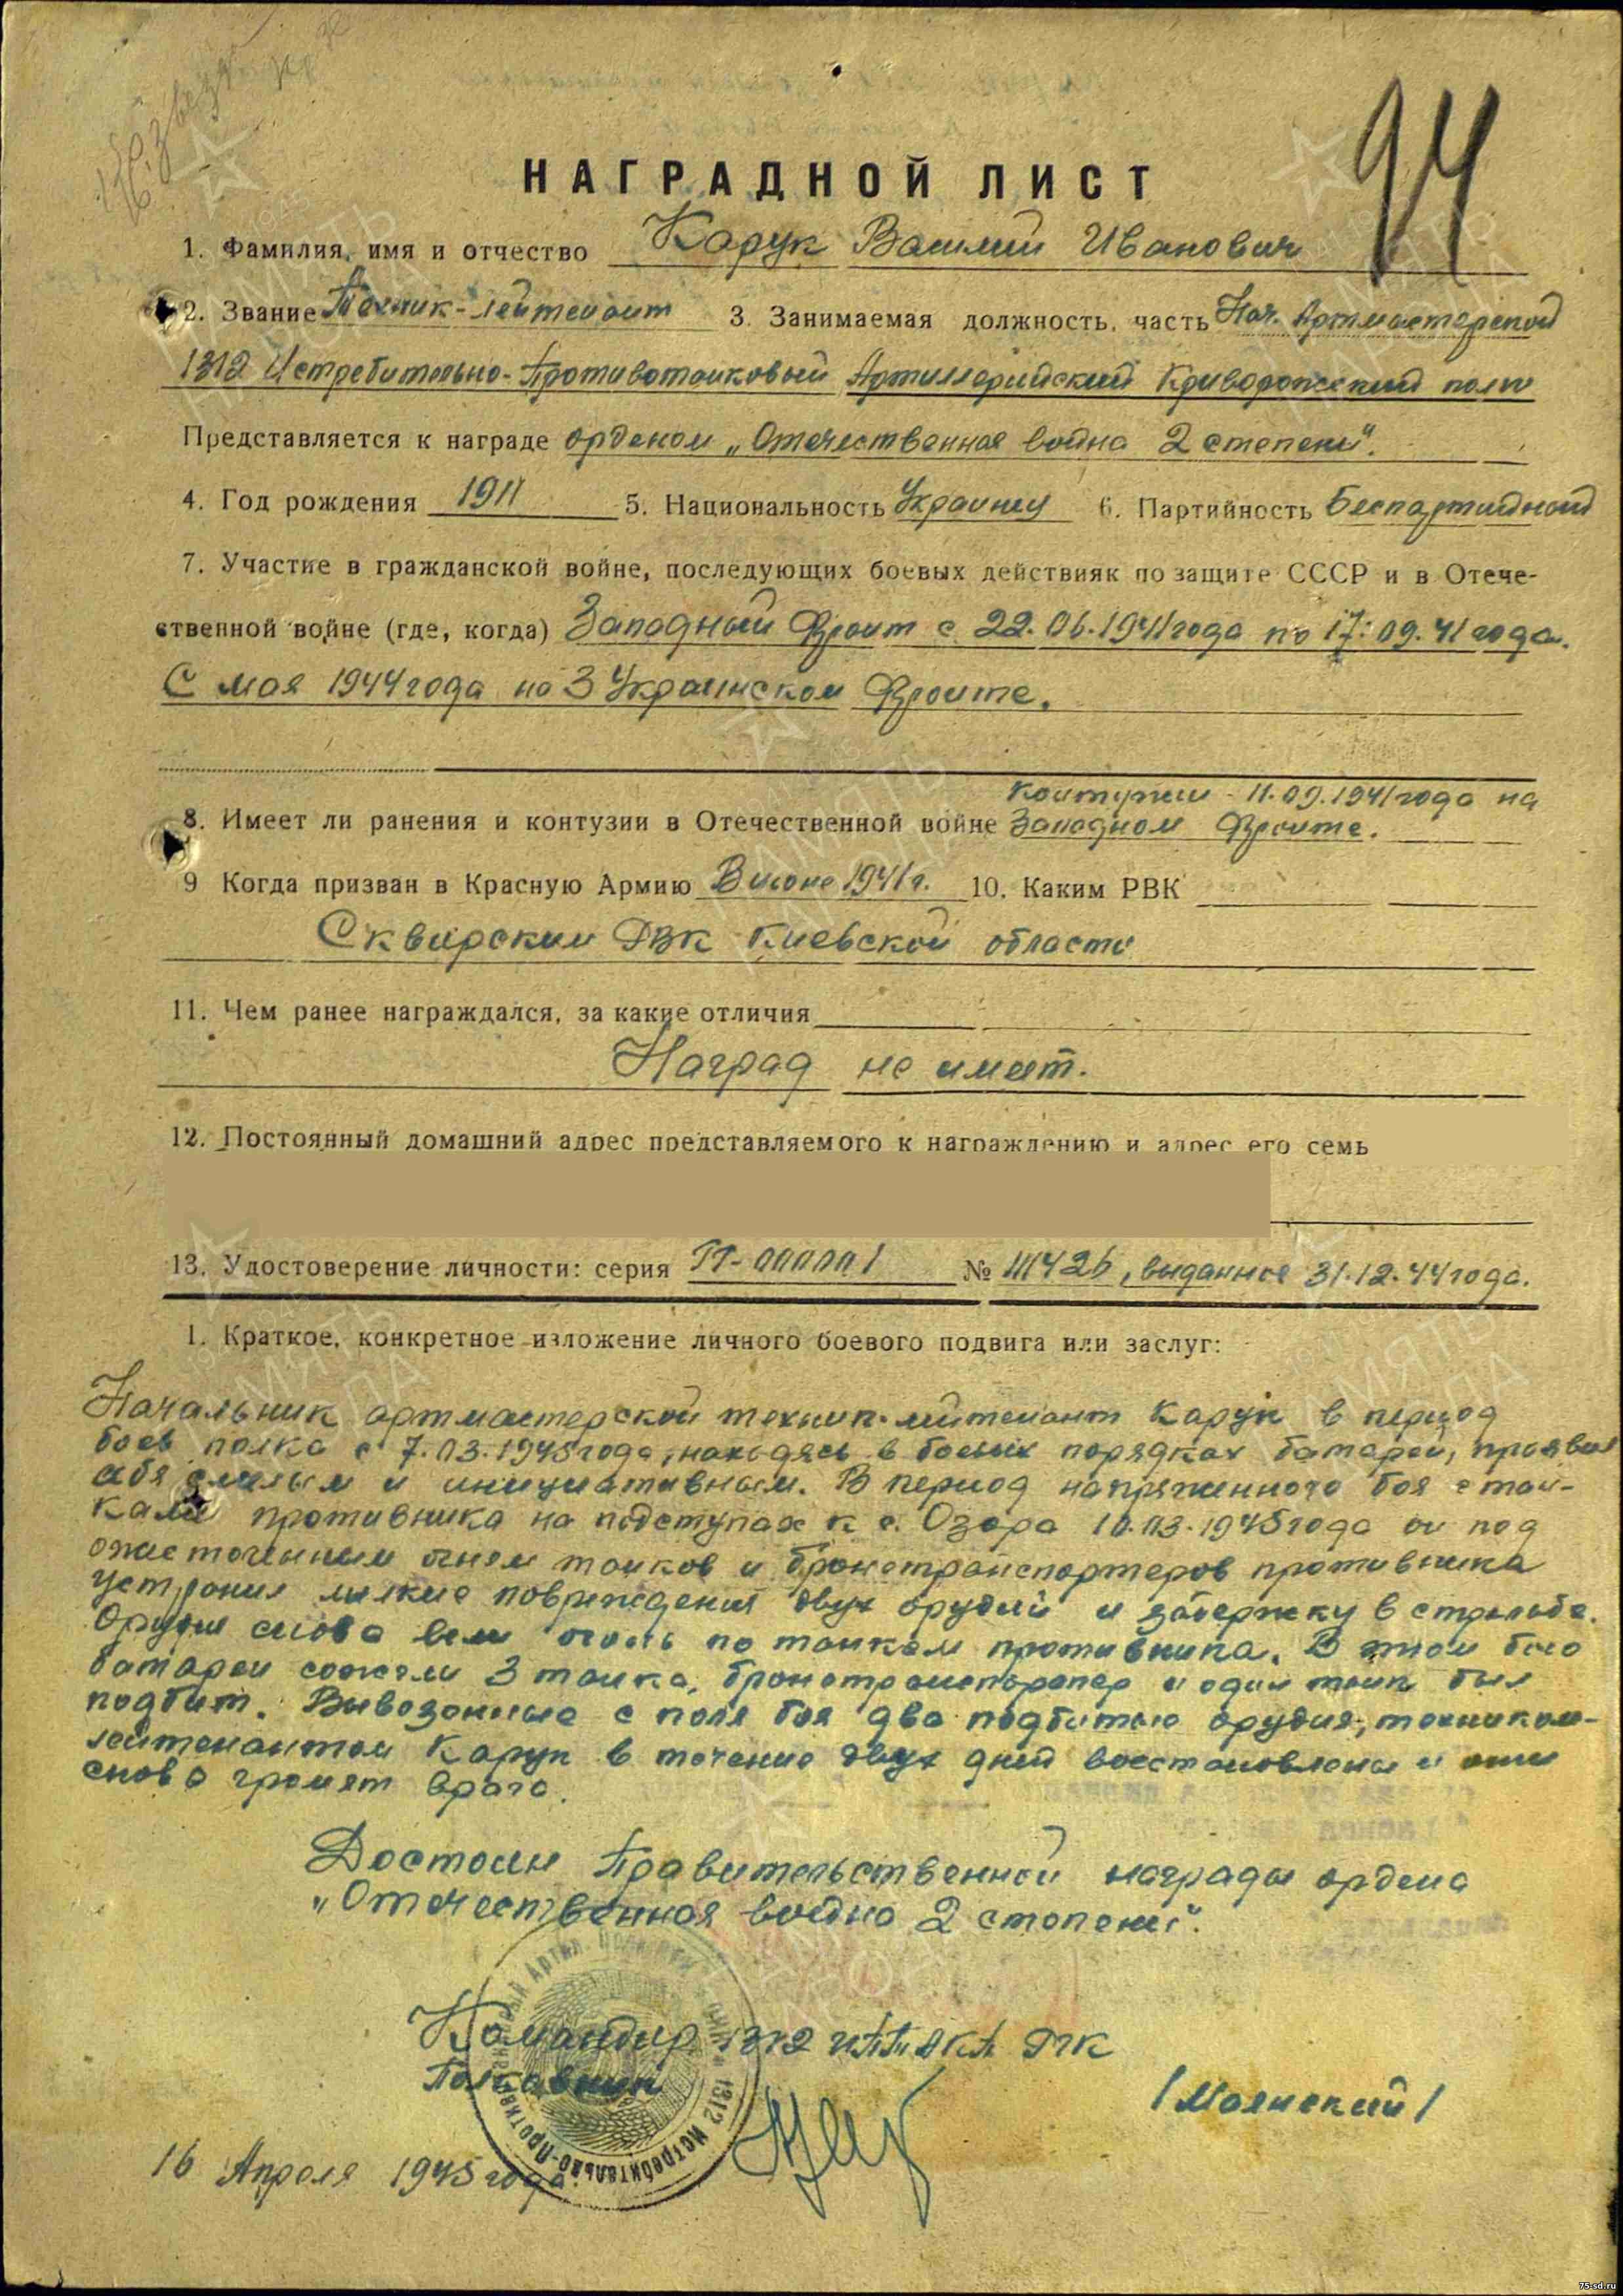 94
НАГРАДНОЙ ЛИСТ
1. Фамилия, имя и отчество Карук Василий Иванович
2. Звание Техник-лейтенант 3. Занимаемая должность, часть Нач. Артмастерской
1312 Истребительно-Противотанковый Артиллерийский Криворожский полк
Представляется к награде орденом „Отечественная война 2 степени".
4. Год рождения 1911 5. Национальность Украинец 6. Партийность Беспартийный
7. Участие в гражданской войне, последующих боевых действияк по защите СССР и в Отече-
ственной войне (где, когда) Западный Фронт с 22.06.1941 года по 17.09.41 года.
С мая 1944 года на 3 Украинском Фронте.
контужен - 11.09.1941 года на
8. Имеет ли ранения и контузии в Отечественной войне Западном Фронте.
9 Когда призван в Красную Армию В июне 1941 г. 10. Каким РВК
Сквирским РВК Киевской области
11. Чем ранее награждался, за какие отличия
Наград не имеет.
12. Постоянный домашний адрес представляемого к награждению и адрес его семь
13. Удостоверение личности: серия № выданное 31.12.44 года.
1. Краткое, конкретное изложение личного боевого подвига или заслуг:
Начальник артмастерской техник-лейтенант Карук в период
боев полка с 7.03.1945 года, находясь в боевых порядках батарей, проявил
себя смелым и инициативным. В период напряженного боя с тан-
ками противника на подступах к с. Озора 10.03.1945 года он под
ожесточенным огнем танков и бронетранспортеров противника
устранил мелкие повреждения двух орудий и задержку в стрельбе.
Орудия снова вели огонь по танкам противника. В этом бою
батареи сожгли 3 танка, бронетранспортер и один танк был
подбит. Вывезенные с поля боя два подбитые орудия, техником-
лейтенантом Карук в течение двух дней восстановлены и они
снова громят врага.
Достоин Правительственной награды ордена
„Отечественная война 2 степени".
Командир 1312 ИПТАКП РГК
Полковник
/Маянский/
16 Апреля 1945 года
1312 Истребительно-Противотанковый Артил. Полк
ПАМЯТЬ НАРОДА
75-sd.ru